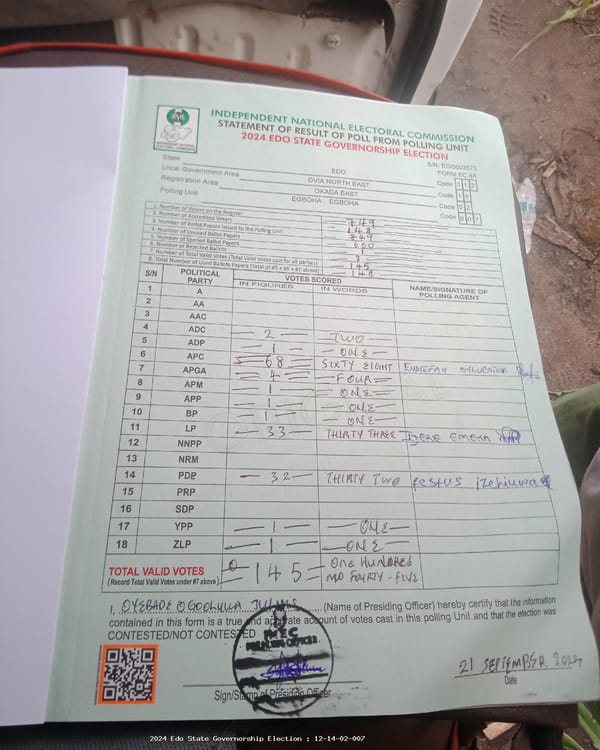 INDEPENDENT NATIONAL ELECTORAL COMMISSION
STATEMENT OF RESULT OF POLL FROM POLLING UNIT
2024 EDO STATE GOVERNORSHIP ELECTION
S/N: EG/0003575
FORM EC 8A
State EDO Code 12
Local Government Area OVIA NORTH EAST Code 14
Registration Area OKADA EAST Code 02
Polling Unit EGBOHA, EGBOHA Code 007
1. Number of Voters on the Register 749
2. Number of Accredited Voters 148
3. Number of Ballot Papers Issued to the Polling Unit 749
4. Number of Unused Ballot Papers
5. Number of Spoiled Ballot Papers
6. Number of Rejected Ballots 3
7. Number of Total Valid Votes (Total Valid Votes cast for all parties) 145
8. Total Number of Used Ballots Papers (Total of #5 + #6 + #7 above) 148
S/N POLITICAL PARTY VOTES SCORED NAME/SIGNATURE OF POLLING AGENT
IN FIGURES IN WORDS
1 A
2 AA
3 AAC
4 ADC 2 TWO
5 ADP 1 ONE
6 APC 68 SIXTY EIGHT
7 APGA 4 FOUR
8 APM 1 ONE
9 APP 1 ONE
10 BP 1 ONE
11 LP 33 THIRTY THREE
12 NNPP
13 NRM
14 PDP 32 THIRTY TWO FESTUS
15 PRP
16 SDP
17 YPP 1 ONE
18 ZLP 1 ONE
TOTAL VALID VOTES 145 One Hundred
(Record Total Valid Votes under #7 above) AND FOURTY-FIVE
I, (Name of Presiding Officer) hereby certify that the information
contained in this form is a true and accurate account of votes cast in this polling Unit and that the election was
CONTESTED/NOT CONTESTED
INEC
PRESIDING OFFICER
21 SEPTEMBER 2024
Date
Sign/Stamp of Presiding Officer
2024 Edo State Governorship Election : 12-14-02-007